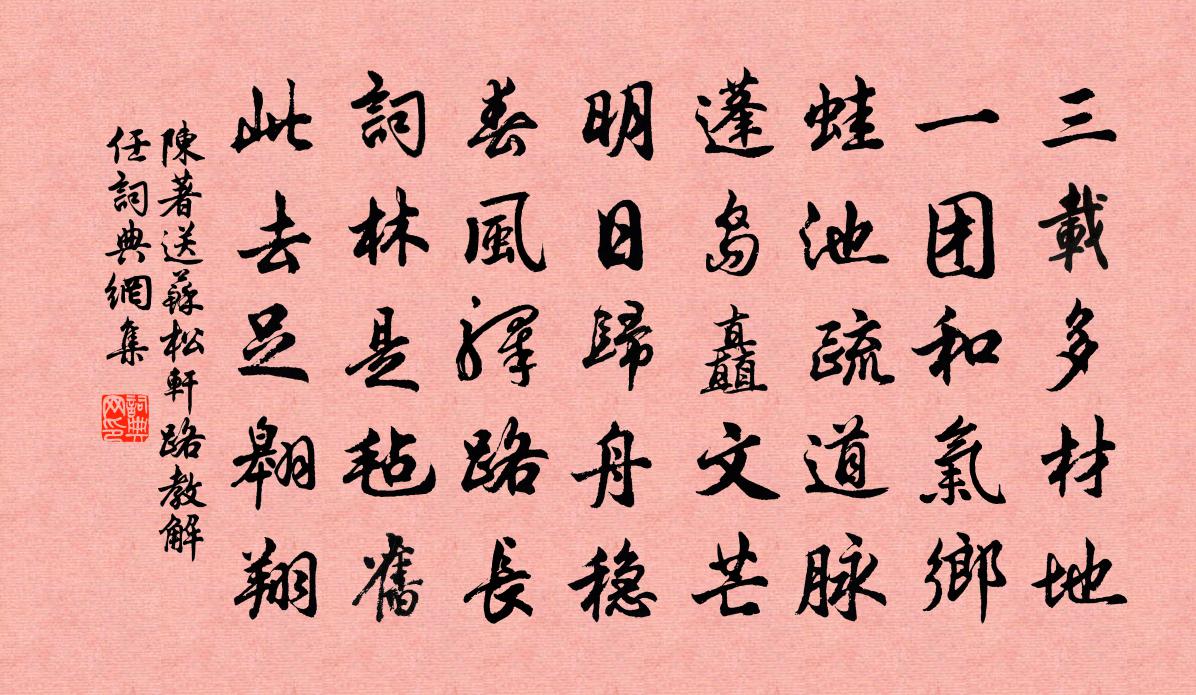 三載多材地
一团和氣鄉
蛙池疏道脉
蓬島矗文芒
明日歸舟穏
春風驛路長
詞林是毡舊
此去足翱翔
陳著送蘇松軒路教解
任詞典網集
詞典网印